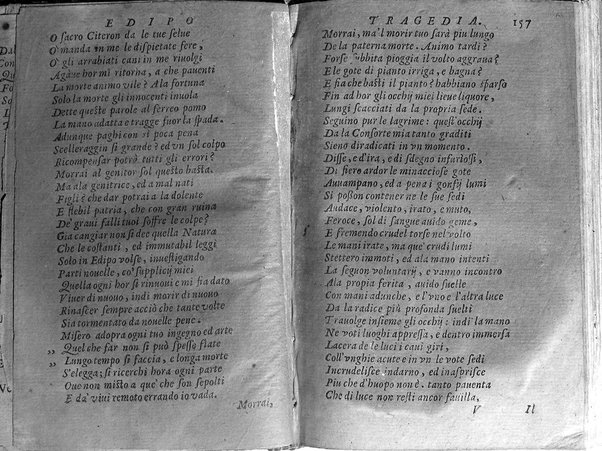 EDIPO
O sacro Citeron da le tue selue
O' manda in me le dispietate fere,
O' gli arrabiati cani in me riuolgi
Agaue hor mi ritorna, a che pauenti
La morte animo vile? A la fortuna
Solo la morte gli innocenti inuola
Dette queste parole al ferreo pomo
La mano adatta e tragge fuor la spada.
Adunque paghi con sì poca pena
Scelleraggin sì grande? ed vn sol colpo
Ricompensar potrà tutti gli errori?
Morrai al genitor sol questo basta.
Ma a la genitrice, ed a mal nati
Figli è che dar potrai a la dolente
E flebil patria, che con gran ruina
De' graui falli tuoi soffre le colpe?
Gia cangiar non si dee quella Natura
Che le costanti, ed immutabil leggi
Solo in Edipo volse, inuestigando
Parti nouelle, co' supplicij miei
Quella ogni hor si rinuoui e mi fia dato
Viuer di nuouo, indi morir di nuouo
Rinascer sempre acciò che tante volte
Sia tormentato da nouelle pene.
Misero adopra ogni tuo ingegno ed arte
„ Quel che far non si può spesso fiate
„ Lungo tempo si faccia, e longa morte
S'elegga; si ricerchi hora ogni parte
Oue non misto a que' che son sepolti
E da' viui remoto errando io vada.
Morrai,
TRAGEDIA. 157
Morrai, ma'l morir tuo sarà piu lungo
De la paterna morte. Animo tardi?
Forse subbita pioggia il volto aggraua?
E le gote di pianto irriga, e bagna?
E fia che basti il pianto? habbiano sparso
Fin ad hor gli occhij miei lieue liquore,
Lungi scacciati da la propria sede.
Seguino pur le lagrime: quest'occhij
Da la Consorte mia tanto graditi
Sieno diradicati in vn momento.
Disse, e d'ira, e di sdegno infuriossi,
Di fiero ardor le minacciose gote
Auuampano, ed a pena i gonfij lumi
Si posson contener ne le sue sedi
Audace, violento, irato, e muto,
Feroce, sol di sangue auido geme,
E fremendo crudel torse nel volto
Le mani irate, ma que' crudi lumi
Stettero immoti, ed ala mano intenti
La seguon voluntarij, e vanno incontro
Ala propia ferita, auido suelle
Con mani adunche, e l'vno e l'altra luce
Da la radice più profonda suelti
Trauolge insieme gli occhij: indi la mano
Ne voti luoghi appressa, e dentro immersa
Lacera de le luci i caui giri,
Coll'vnghie acute e in vn le vote sedi
Incrudelisce indarno, ed inasprisce
Piu che d'huopo non è. tanto pauenta
Che di luce non resti ancor fauilla,
V Il